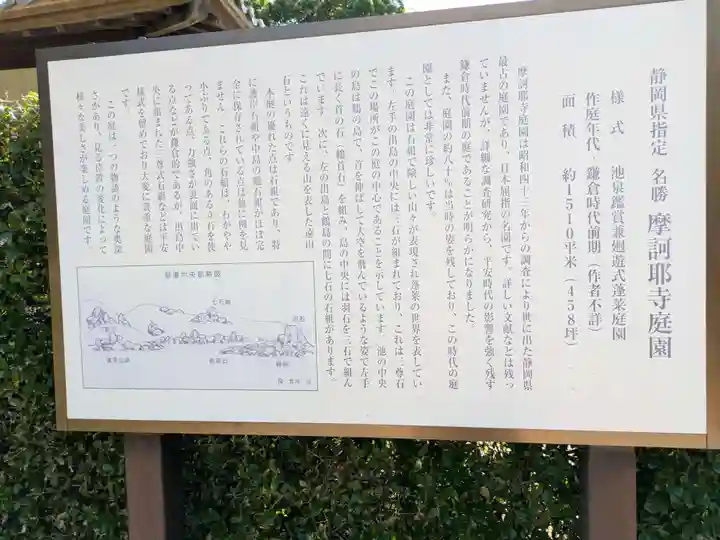 静岡県指定 名勝 摩訶耶寺庭園
様 式 池泉鑑賞兼廻遊式蓬莱庭園
作庭年代 鎌倉時代前期(作者不詳)
面 積 約1510平米(458坪)
摩訶耶寺庭園は昭和四十三年からの調査により世に出た静岡県
最古の庭園であり、日本屈指の名園です。詳しい文献などは残っ
ていませんが、詳細な調査研究から、平安時代の影響を強く残す
鎌倉時代前期の庭であることが明らかになりました。
また、庭園の約八十%は当時の姿を残しており、この時代の庭
園としては非常に珍しいです。
この庭園は石組で険しい山々が表現され蓬莱の世界を表してい
ます。左手の出島の中央には三石が組まれており、これは三尊石
でこの場所がこの庭の中心であることを示しています。池の中央
の島は鶴の島で、首を伸ばして大空を飛んでいるような姿で左手
に長く首の石(鶴首石)を組み、島の中央には羽石を三石で組ん
でいます。次に、左の出島と鶴島の間に七石の石組があります。
これは遠くに見える山を表した遠山
石というものです。
本庭の優れた点は石組であり、特
に護岸石組や中島の鶴石組がほぼ完
全に保存されている点は他に例を見
ません。これらの石組は、石がやや
小ぶりである点、角のある立石を使
っている点、力強さが表面に出てい
る点などが鎌倉的であるが、出島中
央に組まれた三尊式石組などは平安
様式を秘めており大変に貴重な庭園
です。
この庭は、一つの物語のような奥深
さがあり、見る位置の変化によって
様々な美しさが楽しめる庭園です。
庭園中央部略図